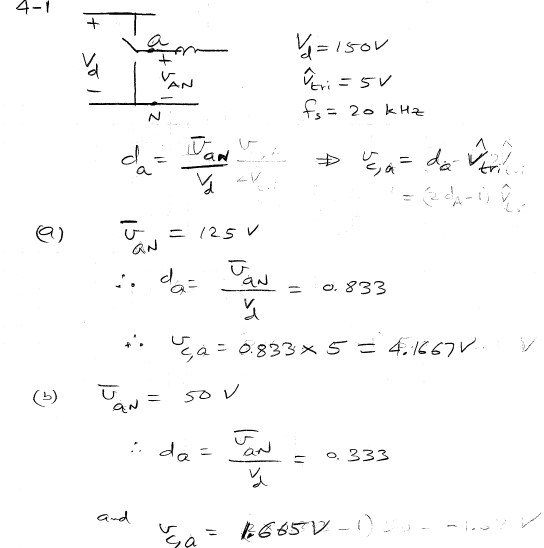 4-1
+ a
V_d + V_d = 150V
v_AN V̂_tri = 5V
- - f_s = 20 kHz
N
d_a = v̄_aN / V_d ⇒ v_c,a = d_a V̂_tri
= (2d_A-1) V̂
(a) v̄_aN = 125 V
∴ d_a = v̄_aN / V_d = 0.833
∴ v_c,a = 0.833 × 5 = 4.1667V V
(b) v̄_aN = 50 V
∴ d_a = v̄_aN / V_d = 0.333
and v_c,a = 1.665V